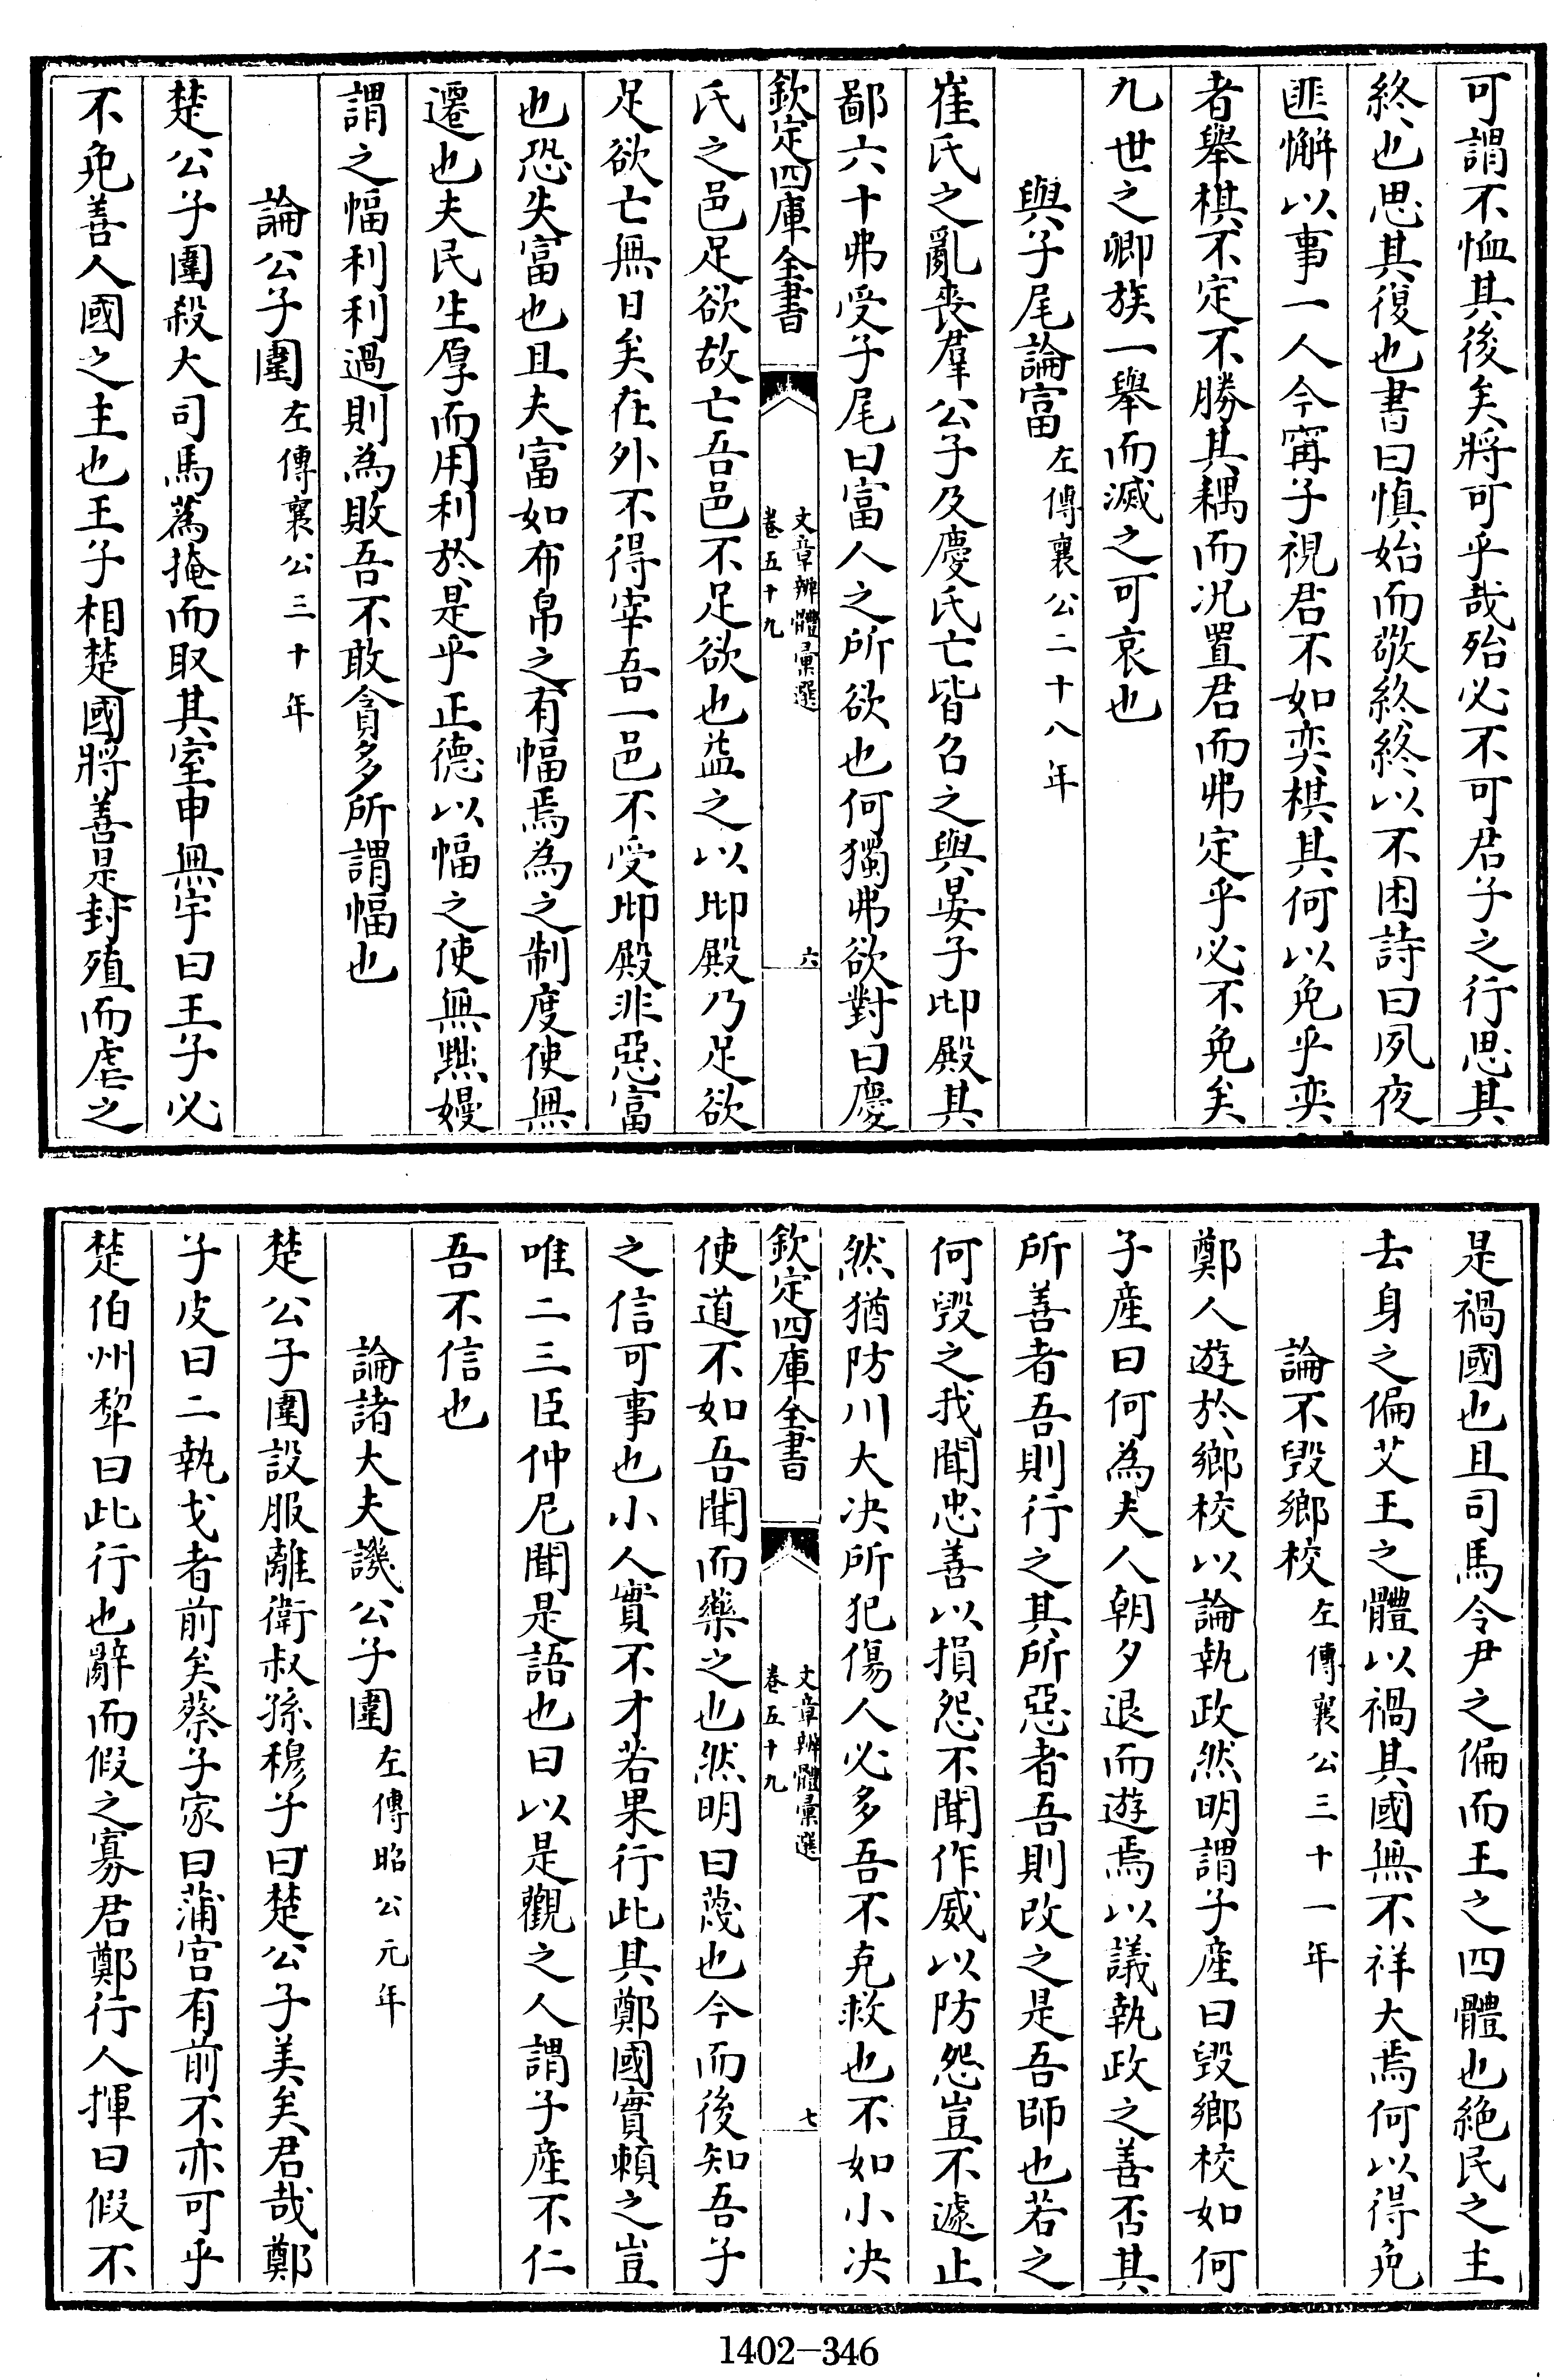 可謂不恤其後矣將可乎哉殆必不可君子之行思其
終也思其復也書曰慎始而敬終終以不困詩曰夙夜
匪懈以事一人今寗子視君不如奕棋其何以免乎奕
者舉棋不定不勝其耦而况置君而弗定乎必不免矣
九世之卿族一舉而滅之可哀也
與子尾論富左傳襄公二十八年
崔氏之亂喪羣公子及慶氏亡皆召之與晏子邶殿其
鄙六十弗受子尾曰富人之所欲也何獨弗欲對曰慶
欽定四庫全書
文章辨體彙選
卷五十九
六
氏之邑足欲故亡吾邑不足欲也益之以邶殿乃足欲
足欲亡無日矣在外不得宰吾一邑不受邶殿非惡富
也恐失富也且夫富如布帛之有幅焉為之制度使無
遷也夫民生厚而用利於是乎正德以幅之使無黜嫚
謂之幅利利過則為敗吾不敢貪多所謂幅也
論公子圍左傳襄公三十年
楚公子圍殺大司馬蒍掩而取其室申無宇曰王子必
不免善人國之主也王子相楚國將善是封殖而虐之
是禍國也且司馬令尹之偏而王之四體也絶民之主
去身之偏艾王之體以禍其國無不祥大焉何以得免
論不毁鄉校左傳襄公三十一年
鄭人遊於鄉校以論執政然明謂子産曰毁鄉校如何
子産曰何為夫人朝夕退而遊焉以議執政之善否其
所善者吾則行之其所惡者吾則改之是吾師也若之
何毁之我聞忠善以損怨不聞作威以防怨豈不遽止
然猶防川大决所犯傷人必多吾不克救也不如小决
欽定四庫全書
文章辨體彙選
卷五十九
七
使道不如吾聞而藥之也然明曰蔑也今而後知吾子
之信可事也小人實不才若果行此其鄭國實賴之豈
唯二三臣仲尼聞是語也曰以是觀之人謂子産不仁
吾不信也
論諸大夫譏公子圍左傳昭公元年
楚公子圍設服離衛叔孫穆子曰楚公子美矣君哉鄭
子皮曰二執戈者前矣蔡子家曰蒲宫有前不亦可乎
楚伯州犂曰此行也辭而假之寡君鄭行人揮曰假不
1402-346